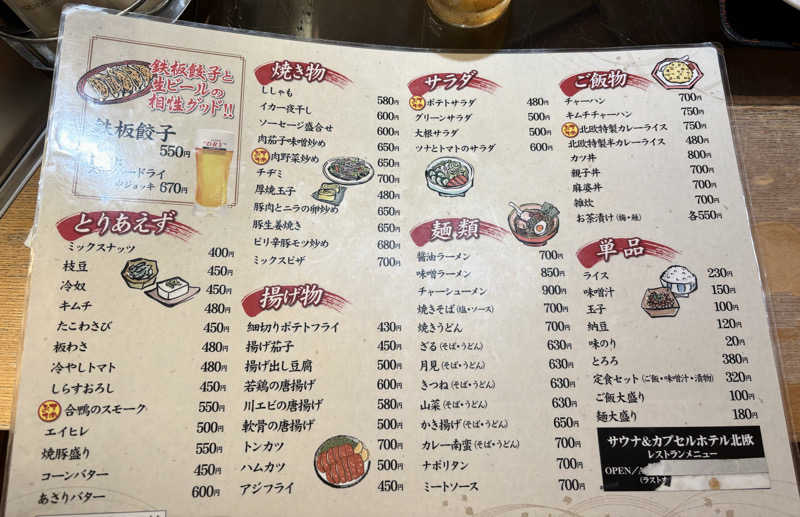 鉄板餃子と
生ビールの
相性グッド!!
鉄板餃子
550円
ドライ
中ジョッキ 670円
とりあえず
ミックスナッツ 400円
枝豆 450円
冷奴 450円
キムチ 480円
たこわさび 450円
板わさ 480円
冷やしトマト 480円
しらすおろし 450円
合鴨のスモーク 550円
エイヒレ 500円
焼豚盛り 550円
コーンバター 450円
あさりバター 600円
焼き物
ししゃも 580円
イカ一夜干し 600円
ソーセージ盛合せ 600円
肉茄子味噌炒め 650円
肉野菜炒め 650円
チヂミ 700円
厚焼玉子 480円
豚肉とニラの卵炒め 650円
豚生姜焼き 650円
ピリ辛豚モツ炒め 680円
ミックスピザ 700円
揚げ物
細切りポテトフライ 430円
揚げ茄子 450円
揚げ出し豆腐 500円
若鶏の唐揚げ 600円
川エビの唐揚げ 580円
軟骨の唐揚げ 500円
トンカツ 500円
ハムカツ 500円
アジフライ 450円
サラダ
ポテトサラダ 480円
グリーンサラダ 500円
大根サラダ 500円
ツナとトマトのサラダ 650円
麺類
醤油ラーメン 700円
味噌ラーメン 850円
チャーシューメン 900円
焼きそば(塩・ソース) 700円
焼きうどん 700円
ざる(そば・うどん) 630円
月見(そば・うどん) 630円
きつね(そば・うどん) 630円
山菜(そば・うどん) 630円
かき揚げ(そば・うどん) 650円
カレー南蛮(そば・うどん) 700円
ナポリタン 700円
ミートソース 700円
ご飯物
チャーハン 700円
キムチチャーハン 750円
北欧特製カレーライス 750円
北欧特製半カレーライス 480円
カツ丼 800円
親子丼 700円
麻婆丼 700円
雑炊 700円
お茶漬け(梅・鮭) 各550円
単品
ライス 230円
味噌汁 150円
玉子 100円
納豆 120円
味のり 20円
とろろ 380円
定食セット(ご飯・味噌汁・漬物) 320円
ご飯大盛り 100円
麺大盛り 180円
サウナ&カプセルホテル北欧
レストランメニュー
OPEN/
(ラスト